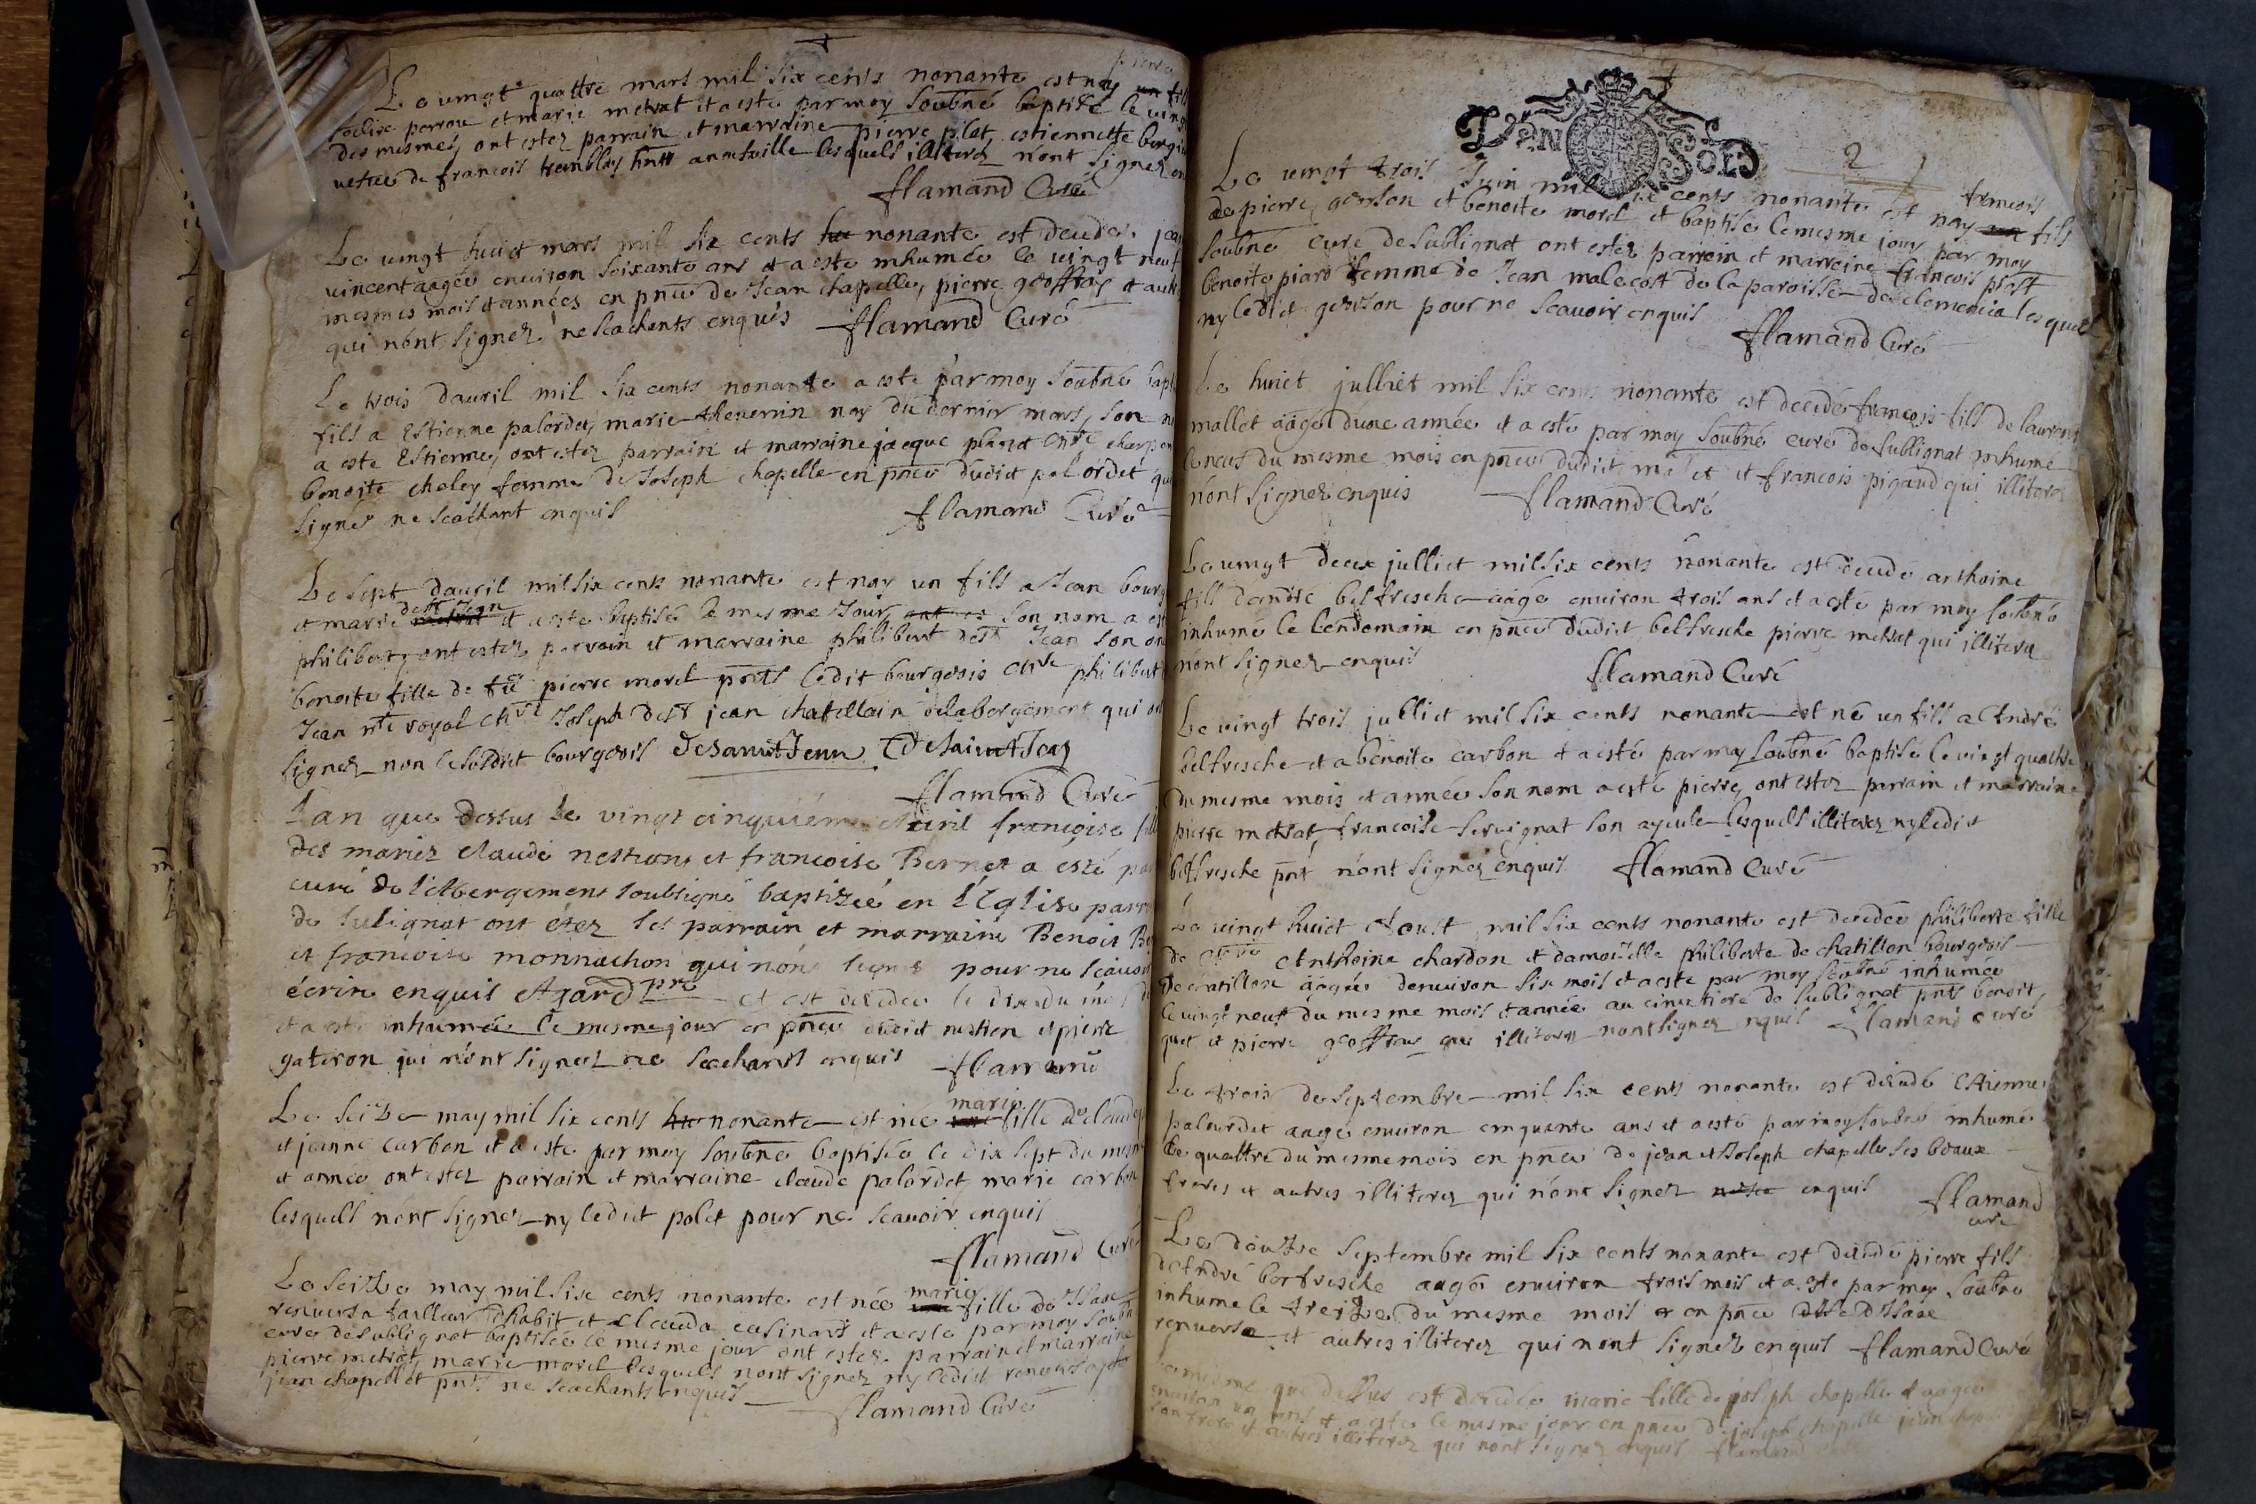 pierre
Le vingt quattre mars mil six cents nonante est nay un fils
perrou et marie metrat et a esté par moy soubné baptizé le ving
des mesmes ont estez parrain et marraine pierre pilat estiennette
de francois tremblay lesquels illiterez n'ont signez en
flamand Curé
Le vingt huict mars mil six cents hu nonante est decedée jea
vincent aagée environ soixante ans et a esté inhumée le vingt neuf
mesmes mois et années en pnce de Jean chapelle, pierre geoffray et aut
qui n'ont signez ne scachants enquis flamand Curé
Le trois d'auril mil six cents nonante a esté par moy soubné bapt
fils a Estienne palordet, marie thevenin nay du dernier mars, son no
a esté Estienne, ont estez parrain et marraine jacque
benoite chaley femme de Joseph chapelle en pnce dudict palordet qui
signés ne scachant enquis
flamand Curé
Le sept dauril mil six cents nonante est nay un fils a Jean bourg
et marie dest Jean et a esté baptisé le mesme Jour ont es son nom a est
philibert, ont estez parrain et marraine philibert dest Jean son on
benoite fille de fû pierre morel pnts ledit bourgeois philibert
Jean nre royal Joseph dest jean chatellain delabergement qui ont
signez non le susdict bourgeois Desainct Jean Desainct Jean
flamand Curé
L'an que dessus Le vingt cinquiéme Auril françoise fille
des mariez claude nestion et francoise Bernet a esté par
curé de l'Abergement soubsigné baptizeé en l'Eglise parr
de sulignat ont étez ses parrain et marraine Benoit
et francoise monnachon qui n'ont signé pour ne scauoir
écrire enquis pre et est decedée le dix du mes
et a esté inhumée le mesme jour en pnce dudict nestion et pierre
gateron qui n'ont signez ne scachants enquis flamand
marie
Le seize may mil six cents hu nonante est née fille de claude
et jeanne carbon et a esté par moy soubné baptisée le dix sept du mesme
et année ont estez parrain et marraine claude palordet, marie carbon
lesquels n'ont signez ny ledict polet pour ne scauoir enquis
flamand Curé
marie
Le seize may mil six cents nonante est née fille de Isaac
renverse tailleur d'habit et Clauda casinard et a esté par moy soubné
curé de sublignat baptisée le mesme jour ont estez parrain et marraine
pierre metrat, marie morel lesquels n'ont signez ny ledict renverse
jean chapell et pnts ne scachants enquis
flamand Curé
DEN SOLS
2
Le vingt trois Juin mil six cents nonante est nay un francois fils
de pierre gerson et benoite morel et baptisé le mesme jour par moy
soubné curé de sublignat ont estez parrain et marraine francois plast
benoite piard femme de Jean malecost de la paroisse de clemencia lesquels
ny ledict gerson pour ne scauoir enquis
flamand Curé
Le huict julliet mil six cens nonante est decedé francois fils de laurens
mallet aagé d'une année et a esté par moy soubné curé de sublignat inhumé
le neuf du mesme mois en pnce dudict mallet et francois pigaud qui illiterez
n'ont signez enquis flamand Curé
Le vingt deux julliet mil six cents nonante est decedé anthoine
fils d'andré belfresche aagé environ trois ans et a esté par moy soubné
inhumé le lendemain en pnce dudict belfresche pierre metrat qui illiterez
n'ont signez enquis
flamand Curé
Le vingt trois julliet mil six cents nonante est né un fils a André
belfresche et a benoite carbon et a esté par moy soubné baptisé le vingt quattre
du mesme mois et année son nom a esté pierre, ont estez parrain et marraine
pierre metrat, francoise seruignat son ayeule lesquels illiterez ny ledict
belfresche pnt n'ont signez enquis flamand Curé
Le vingt huict Aoust mil six cents nonante est decedée philiberte fille
de Anthoine chardon et damoiselle philiberte de chatillon bourgeois
de chatillon aagée denuiron six mois et a esté par moy soubné inhumée
le vingt neuf du mesme mois et année au cimetiere de sublignat pnts benoit
quet et pierre geoffray qui illiterez n'ont signez enquis flamand curé
Le trois de septembre mil six cents nonante est decedé Estienne
palourdet aagé environ cinquante ans et a esté par moy soubné inhumé
le quattre du mesme mois en pnce de jean et Joseph chapelle ses beaux
freres et autres illiterez qui n'ont signez enquis flamand
curé
Le douze septembre mil six cents nonante est decedé pierre fils
d'André berfresche aagé environ trois mois et a esté par moy soubné
inhumé le treize du mesme mois en pnce d'Isaac
renverse et autres illiterez qui n'ont signez enquis flamand Curé
Le mesme que dessus est decedée marie fille de joseph chapelle et aagée
environ un ans et a esté le mesme jour en pnce de joseph chapelle jean
son frere et autres illiterez qui n'ont signez enquis flamand